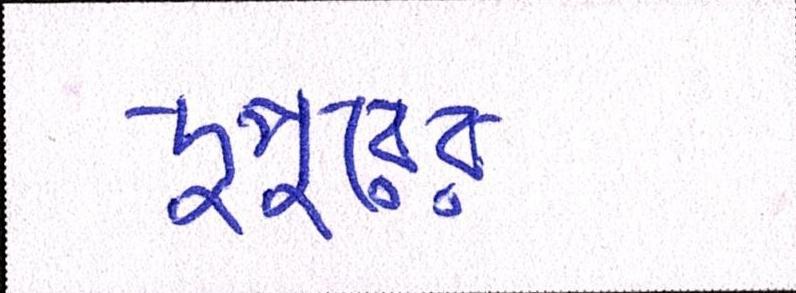 দুপুরের